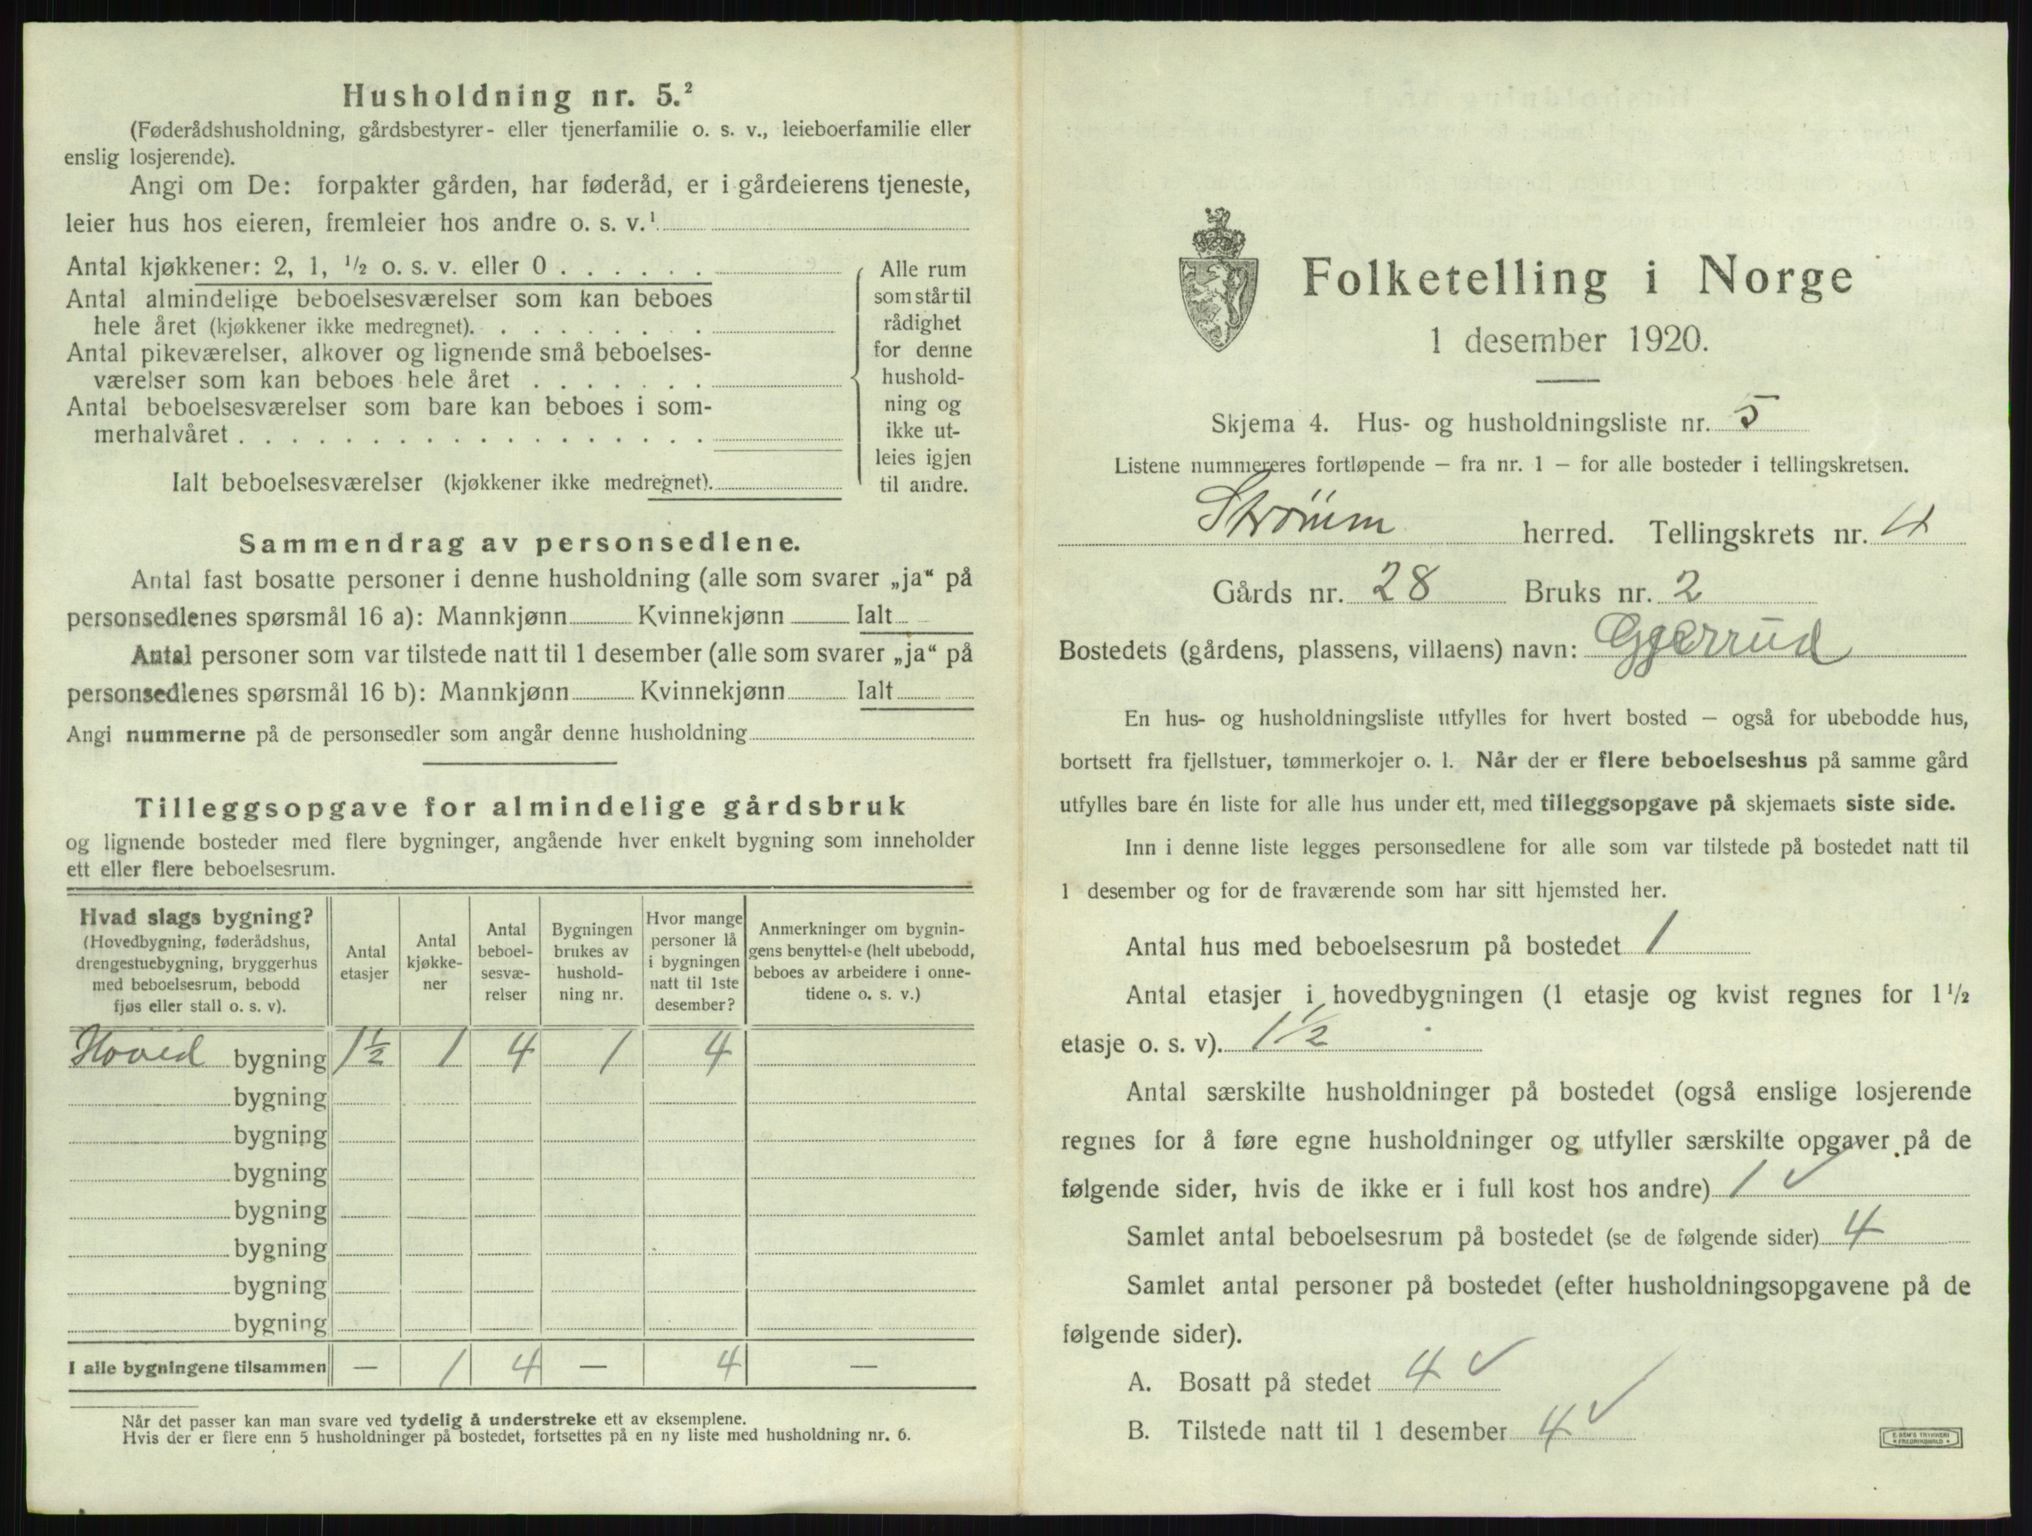 Husholdning nr. 5.²
(Føderådshusholdning, gårdsbestyrer- eller tjenerfamilie o. s. v., leieboerfamilie eller
enslig losjerende).
Angi om De: forpakter gården, har føderåd, er i gårdeierens tjeneste,
leier hus hos eieren, fremleier hos andre o. s. v.¹
Antal kjøkkener: 2, 1, ½ o. s. v. eller 0 . . . . . .
Antal almindelige beboelsesværelser som kan beboes
hele året (kjøkkener ikke medregnet). . . . . . . . .
Antal pikeværelser, alkover og lignende små beboelses-
værelser som kan beboes hele året . . . . . . .
Antal beboelsesværelser som bare kan beboes i som-
merhalvåret . . . . . . . . . . . . . . . . . .
Ialt beboelsesværelser (kjøkkener ikke medregnet).
Alle rum
som står til
rådighet
for denne
hushold-
ning og
ikke ut-
leies igjen
til andre.
Sammendrag av personsedlene.
Antal fast bosatte personer i denne husholdning (alle som svarer „ja“ på
personsedlenes spørsmål 16 a): Mannkjønn Kvinnekjønn Ialt
Antal personer som var tilstede natt til 1 desember (alle som svarer „ja“ på
personsedlenes spørsmål 16 b): Mannkjønn Kvinnekjønn Ialt
Angi nummerne på de personsedler som angår denne husholdning
Tilleggsopgave for almindelige gårdsbruk
og lignende bosteder med flere bygninger, angående hver enkelt bygning som inneholder
ett eller flere beboelsesrum.
Hvad slags bygning?
(Hovedbygning, føderådshus,
drengestuebygning, bryggerhus
med beboelsesrum, bebodd
fjøs eller stall o. s. v).
Antal
etasjer
Antal
kjøkke-
ner
Antal
beboel-
sesvæ-
relser
Bygningen
brukes av
hushold-
ning nr.
Hvor mange
personer lå
i bygningen
natt til 1ste
desember?
Anmerkninger om bygnin-
gens benyttelse (helt ubebodd,
beboes av arbeidere i onne-
tidene o. s. v.)
Hoved bygning 1½ 1 4 1 4
bygning
bygning
bygning
bygning
bygning
bygning
bygning
I alle bygningene tilsammen — 1 4 — 4 —
Når det passer kan man svare ved tydelig å understreke ett av eksemplene.
Hvis der er flere enn 5 husholdninger på bostedet, fortsettes på en ny liste med husholdning nr. 6.
Folketelling i Norge
1 desember 1920.
Skjema 4. Hus- og husholdningsliste nr. 5
Listene nummereres fortløpende – fra nr. 1 – for alle bosteder i tellingskretsen.
Strømm herred. Tellingskrets nr. 4
Gårds nr. 28 Bruks nr. 2
Bostedets (gårdens, plassens, villaens) navn: Gjerrud
En hus- og husholdningsliste utfylles for hvert bosted – også for ubebodde hus,
bortsett fra fjellstuer, tømmerkojer o. l. Når der er flere beboelseshus på samme gård
utfylles bare én liste for alle hus under ett, med tilleggsopgave på skjemaets siste side.
Inn i denne liste legges personsedlene for alle som var tilstede på bostedet natt til
1 desember og for de fraværende som har sitt hjemsted her.
Antal hus med beboelsesrum på bostedet 1
Antal etasjer i hovedbygningen (1 etasje og kvist regnes for 1½
etasje o. s. v). 1½
Antal særskilte husholdninger på bostedet (også enslige losjerende
regnes for å føre egne husholdninger og utfyller særskilte opgaver på de
følgende sider, hvis de ikke er i full kost hos andre) 1 ✓
Samlet antal beboelsesrum på bostedet (se de følgende sider) 4
Samlet antal personer på bostedet (efter husholdningsopgavene på de
følgende sider).
A. Bosatt på stedet 4 ✓
B. Tilstede natt til 1 desember 4 ✓